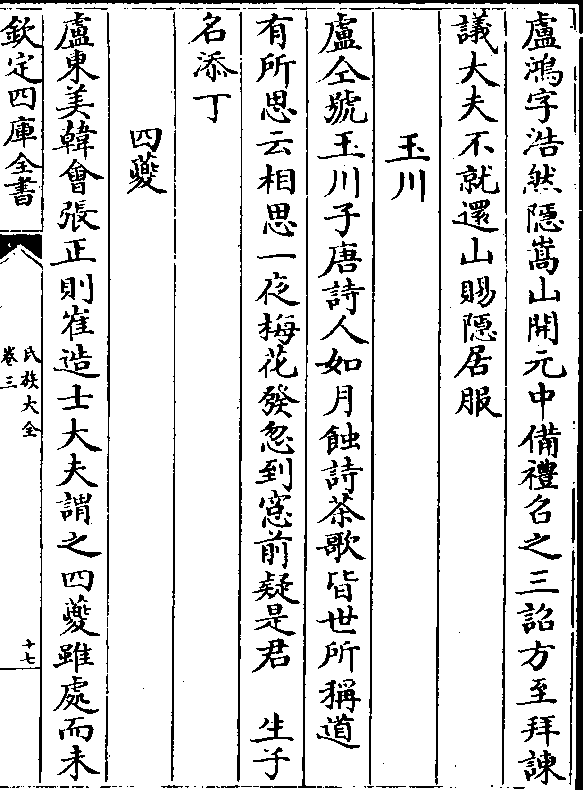 盧鴻字浩然隱嵩山開元中備禮召之三詔方至拜諫
議大夫不就還山賜隱居服
玉川
盧仝號玉川子唐詩人如月蝕詩茶歌皆世所稱道
有所思云相思一夜梅花發忽到窓前疑是君　生子
名添丁
四夔
盧東美韓會張正則崔造士大夫謂之四夔雖處而未
欽定四庫全書
氏族大全
卷三
十七